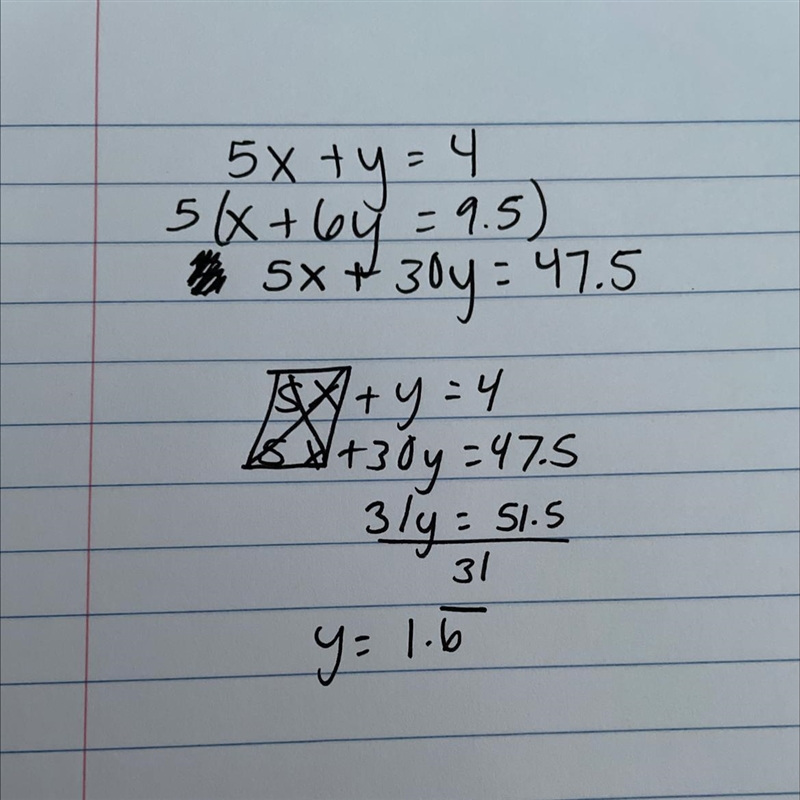 5x + y = 4
5(x + 6y = 9.5)
5x + 30y = 47.5
5x + y = 4
5x + 30y = 47.5
31y = 51.5
31
y = 1.6̅